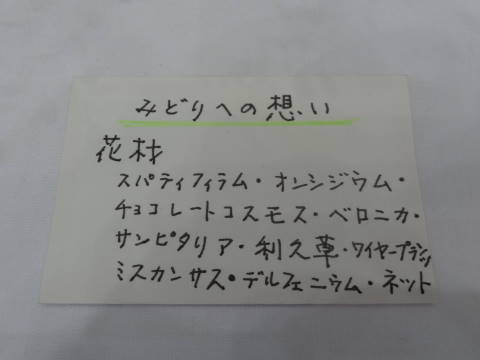 みどりへの想い
花材
スパティフィラム・オンシジウム・
チョコレートコスモス・ベロニカ・
サンピタリア・利久草・ワイヤープランツ
ミスカンサス・デルフェニウム・ネット